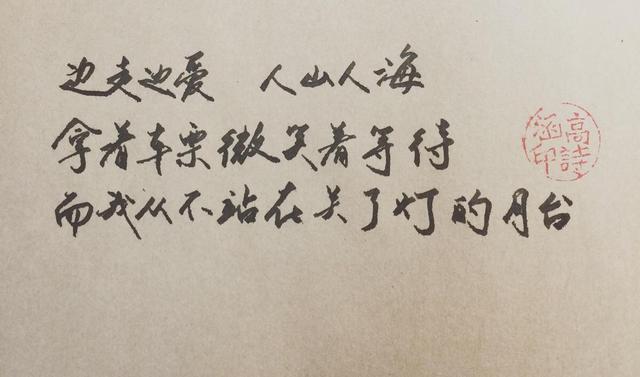 边走边爱 人山人海
拿着车票微笑着等待
而我从不站在关了灯的月台
高詩涵印